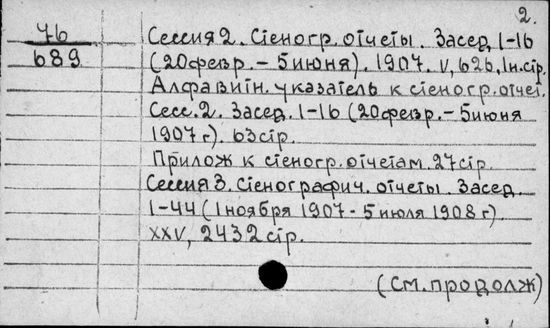 2.
7б
689
Сессия 2. Стеногр. отчеты. Засед. 1-16
(20 февр. - 5 июня). 1907. V, 626, 1 н. стр.
Алфавитн. указатель к стеногр. отчет.
Сесс. 2. Засед. 1-16 (20 февр. - 5 июня
1907 г). 63 стр.
Прилож к стеногр. отчетам. 27 стр.
Сессия 3. Стенографич. отчеты. Засед.
1-44 (1 ноября 1907 - 5 июля 1908 г).
XXV, 2432 стр.
(см. продолж)